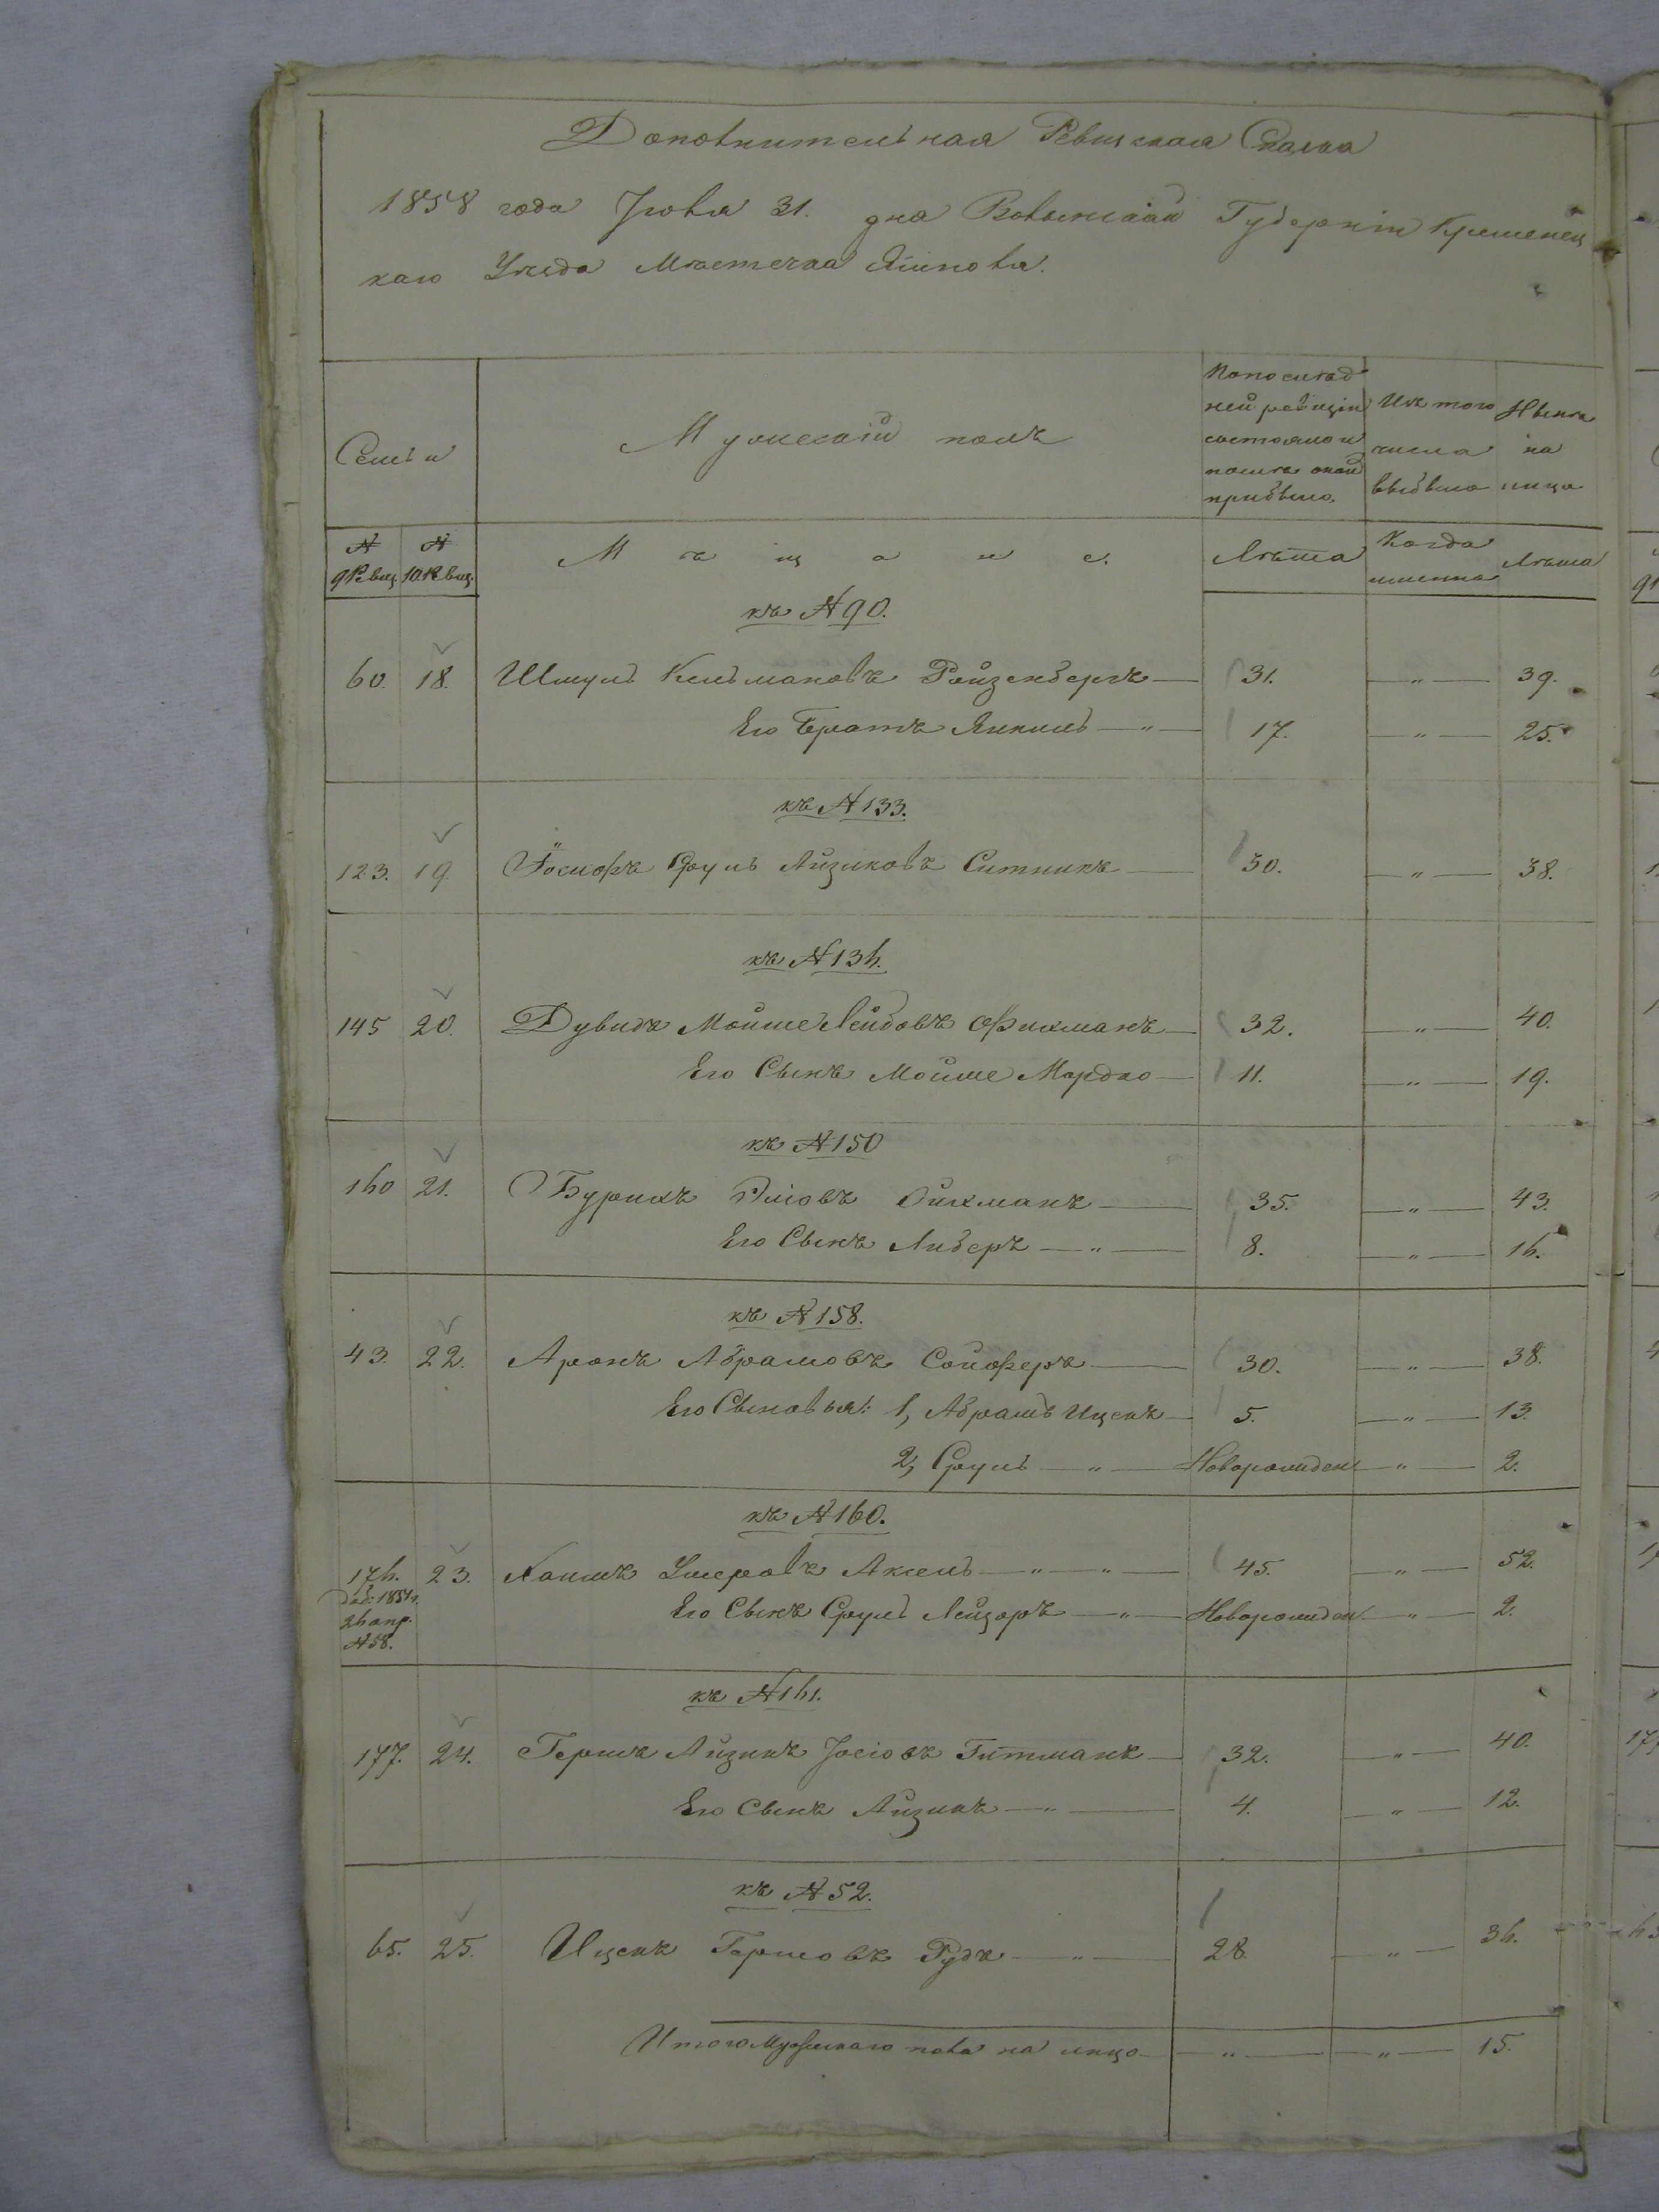 Дополнительная Ревизская Сказка
1858 года Іюля 31. дня Волынской Губерніи Кременец
каго Уезда Мѣстечка Ямполя.
Семьи
Мужескій полъ
По послѣд
ней ревизіи
состояло и
послѣ оной
прибыло
Изъ того
числа
выбыло
Нынѣ
на
лицо
№ 9 Ревиз
№ 10. Ревиз.
М ѣ щ а н е.
Лѣта
Когда
именно
Лѣта
къ № 90.
60. 18. Шмуль Кельмановъ Ройзенбергъ — 31. — " — 39.
Его Братъ Янкиль — " — 17. — " — 25.
къ № 133.
123. 19. Іосифъ Сруль Айзиковъ Ситникъ — 30. — " — 38.
къ № 136.
145 20. Дувидъ Мойше Лейбовъ Фихманъ — 32. — " — 40.
Его Сынъ Мойше Мордко — 11. — " — 19.
къ № 150
160 21. Бурихъ Эліовъ Ойхманъ — 35. — " — 43.
Его Сынъ Либеръ — " — 8. — " — 16.
къ № 158.
43. 22. Аронъ Абрамовъ Сойферъ — 30. — " — 38.
Его Сыновья: 1, Абрамъ Ицекъ — 5. — " — 13.
2, Сруль — " — Новорожден — " — 2.
къ № 160.
176. 23. Хаимъ Умеровъ Аксель — " — " — 45. — " — 52.
доб: 1851 г.
26 апр.
№ 58.
Его Сынъ Сруль Лейзоръ — " — Новорожден. — " — 2.
къ № 161.
177. 24. Гершъ Айзикъ Іосіовъ Гитманъ — 32. — " — 40.
Его Сынъ Айзикъ — " — 4. — " — 12.
къ № 52.
65. 25. Ицекъ Гершовъ Рудъ — " — 28. — " — 36.
Итого Мужескаго пола на лицо — " — " — 15.